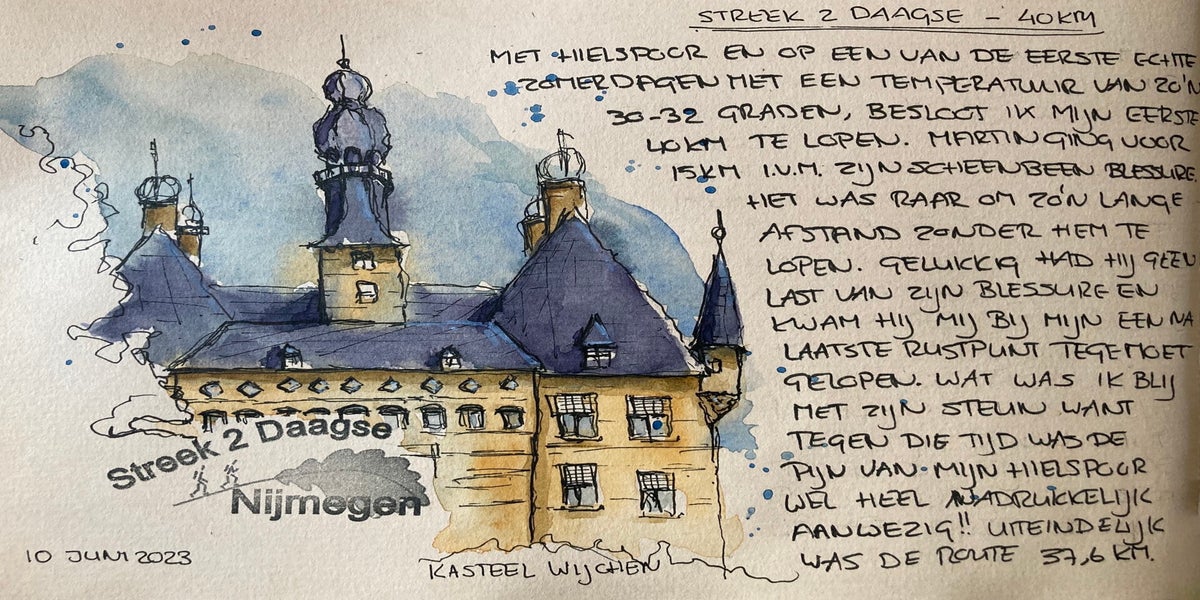 STREEK 2 DAAGSE - 40KM
MET HIELSPOOR EN OP EEN VAN DE EERSTE ECHTE
ZOMERDAGEN MET EEN TEMPERATUUR VAN ZO'N
30-32 GRADEN, BESLOOT IK MIJN EERSTE
40KM TE LOPEN. MARTIN GING VOOR
15KM I.V.M. ZIJN SCHEENBEEN BLESSURE.
HET WAS RAAR OM ZO'N LANGE
AFSTAND ZONDER HEM TE
LOPEN. GELUKKIG HAD HIJ GEEN
LAST VAN ZIJN BLESSURE EN
KWAM HIJ MIJ BIJ MIJN EEN NA
LAATSTE RUSTPUNT TEGEMOET
GELOPEN. WAT WAS IK BLIJ
MET ZIJN STEUN WANT
TEGEN DIE TIJD WAS DE
PIJN VAN MIJN HIELSPOOR
WEL HEEL NADRUKKELIJK
AANWEZIG!! UITEINDELIJK
WAS DE ROUTE 37,6 KM.
Streek 2 Daagse
Nijmegen
10 JUNI 2023
KASTEEL WIJCHEN